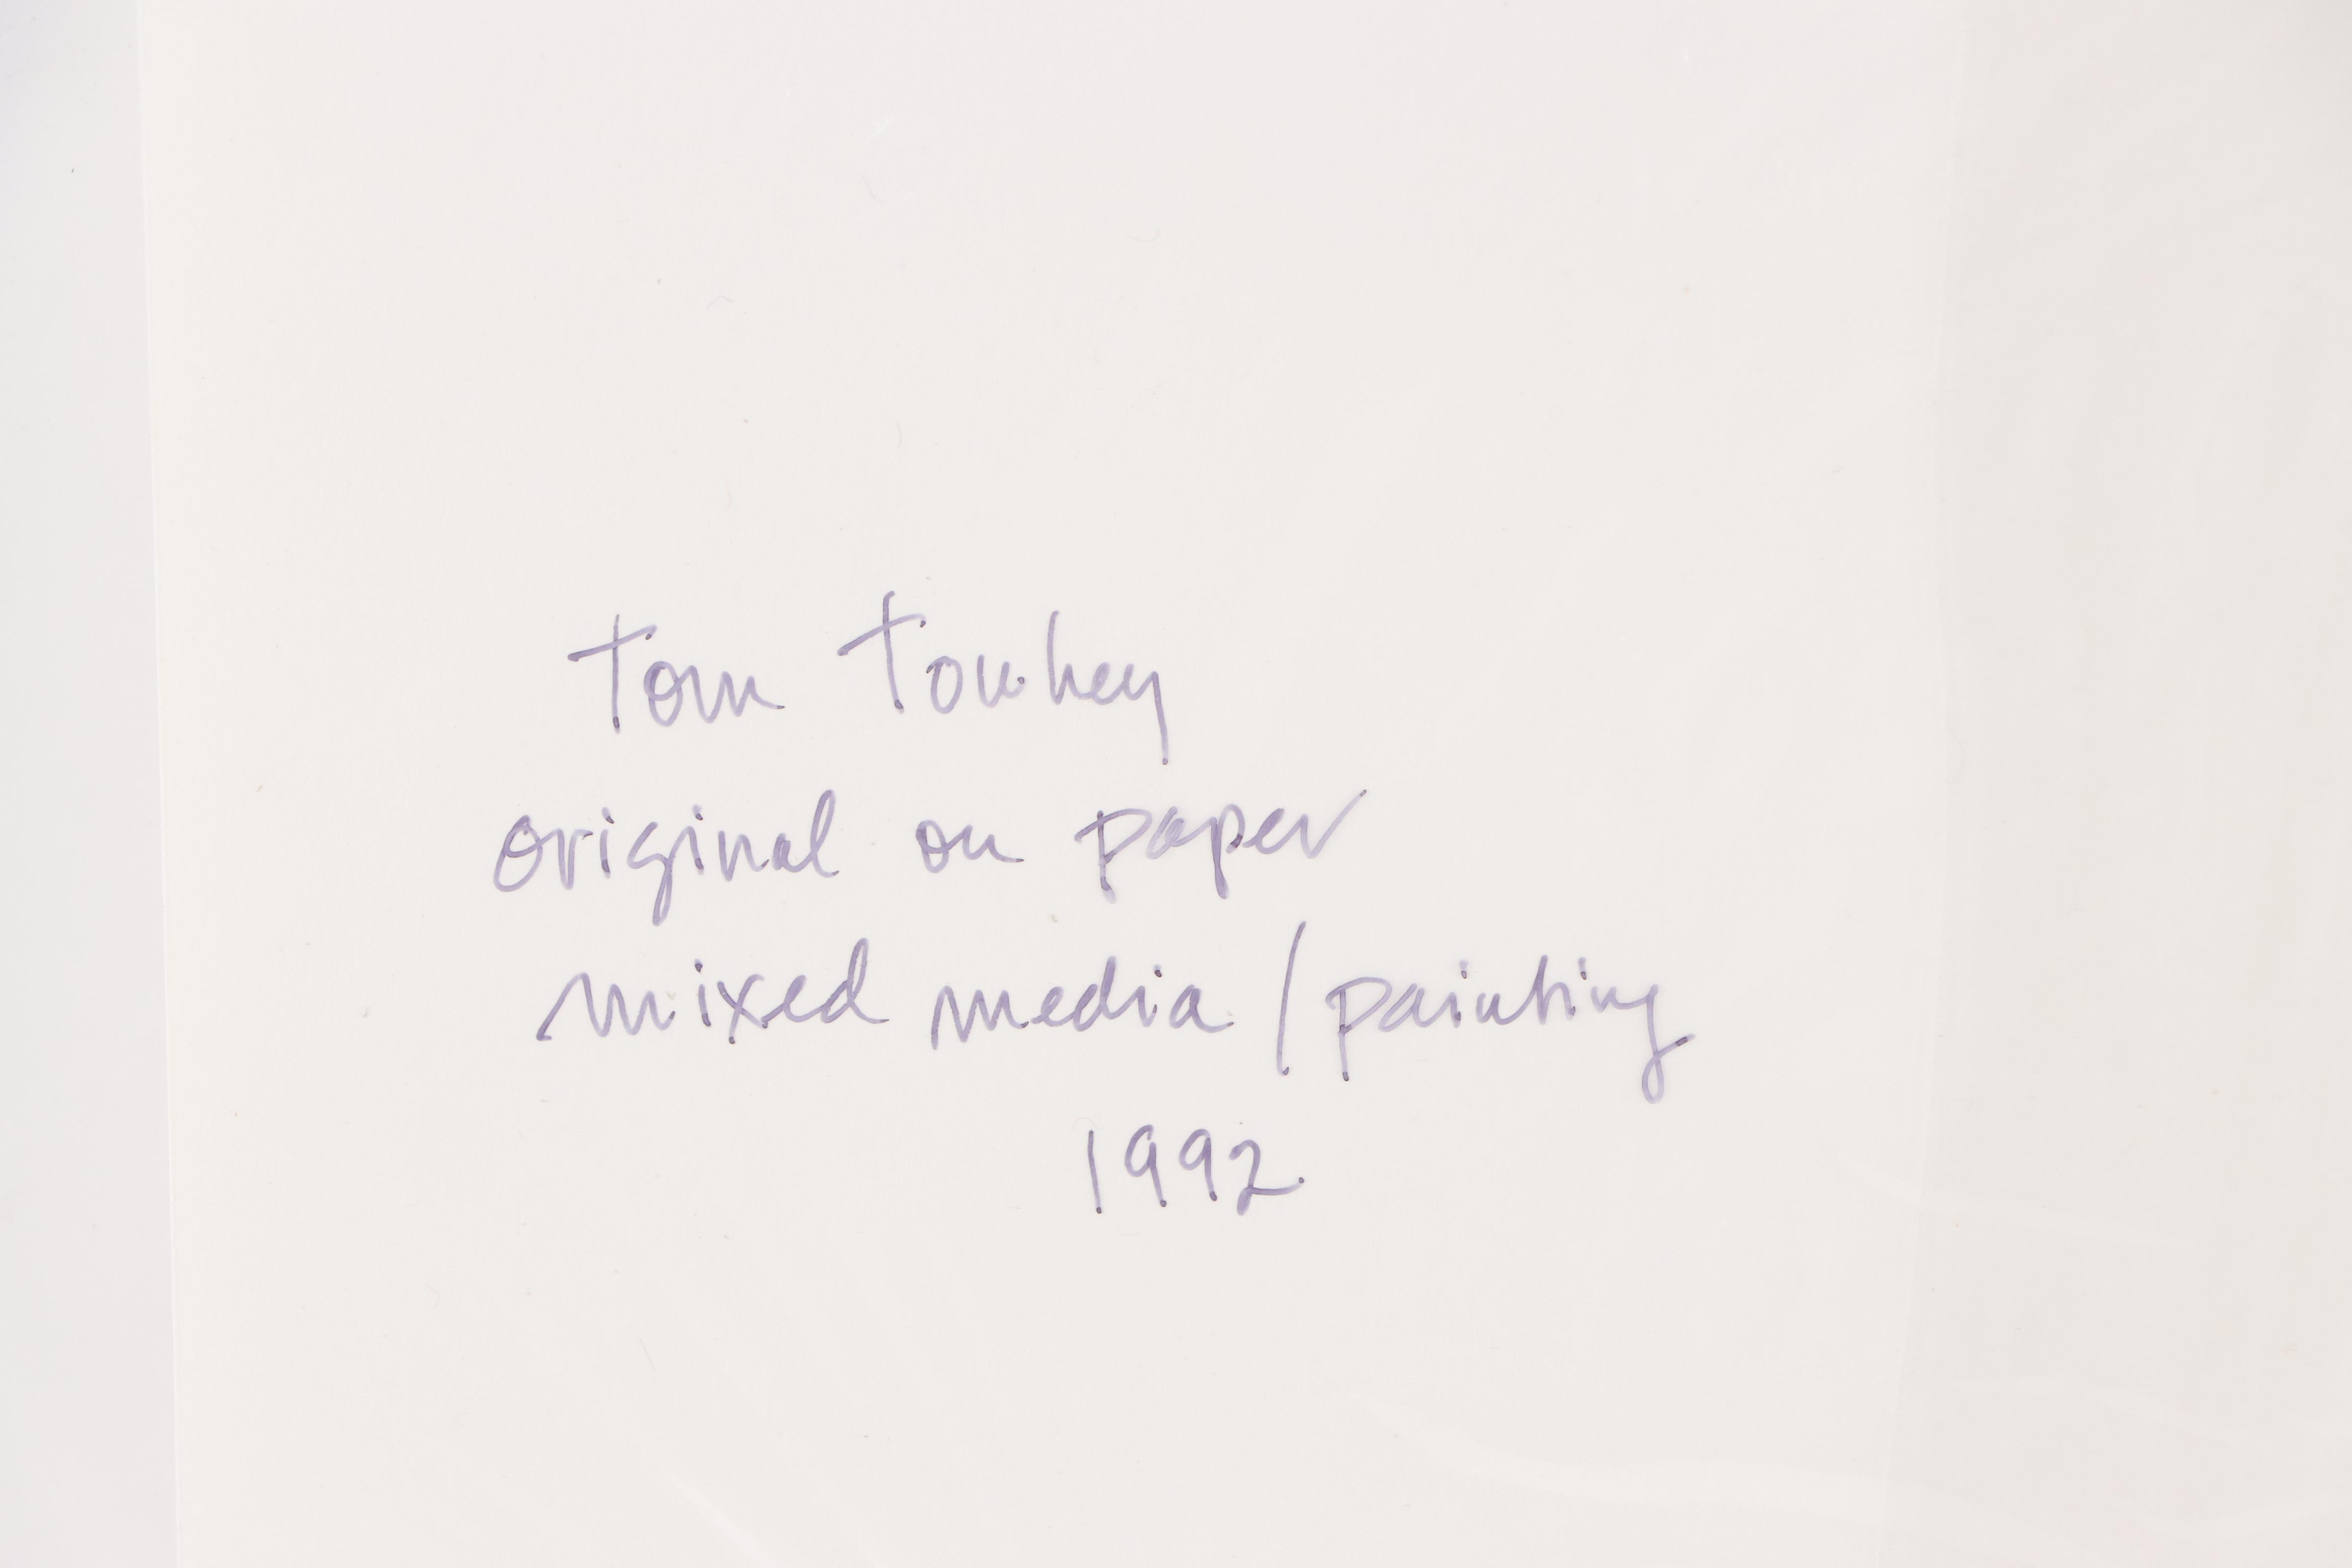 Tom Towhey
original on paper
mixed media / painting
1992